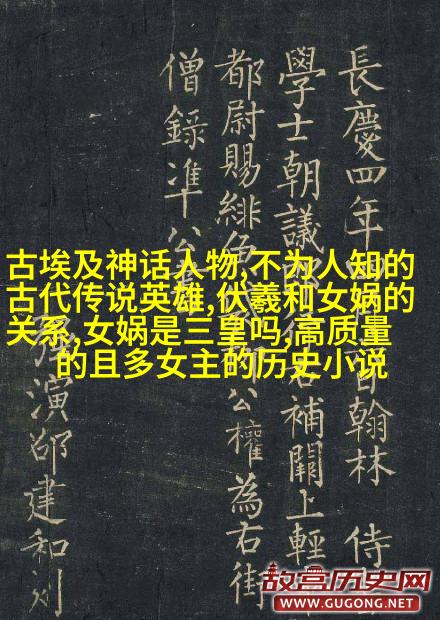 古埃及神话人物,不为人知的
古代传说英雄,伏羲和女娲的
关系,女娲是三皇吗,高质量
的且多女主的历史小说
長慶四年 日翰林 侍
學士朝議 補闕上輕
都尉賜緋 公權為右街
僧錄準公
演邵建和刻
故宫历史网
WWW.GUGONG.NET